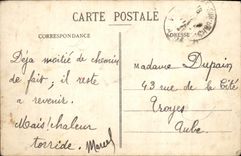 CARTE POSTALE
CORRESPONDANCE
ADRESSE
Déjà moitié de chemin
de fait ; il reste
à revenir.
Mais! chaleur
torride. Marcel
Madame Dupain
43 rue de la Cité
Troyes
Aube